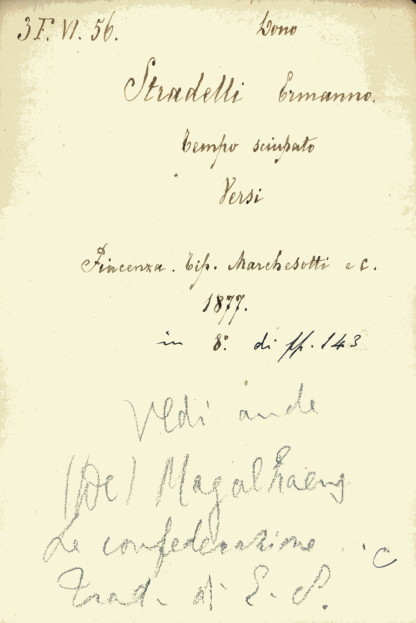 3 F. VI. 56. Dono
Stradelli Ermanno.
Tempo sciupato
Versi
Piacenza. Tip. Marchesotti e C.
1877.
in 8º di pp. 143
Vedi anche
(De) Magalhaens
La confederazione
Trad. di E. S.